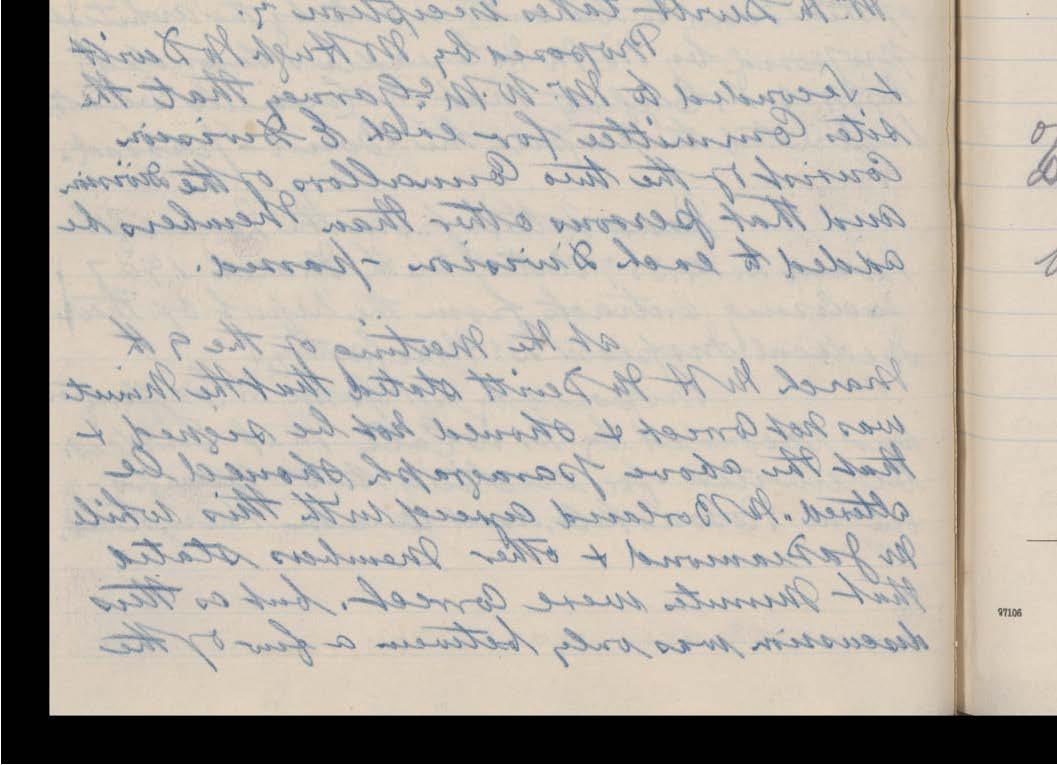 Mr. H. Devitt takes exception
Proposed by Mr Hugh McDevitt
& Seconded by Mr. W. McGarvey that the
site Committee for each E Division
Consist of the two Councillors of the Division
and that persons other than Members be
added to each Division - passed.
At the Meeting of the 9th
March Mr H McDevitt stated that the Minute
was not Correct & should not be signed &
that the above paragraph should be
altered. Mr Borland agreed with this while
Mr Jas Diamond & other Members stated
that Minutes were Correct, but as this
discussion was only between a few of the
97106